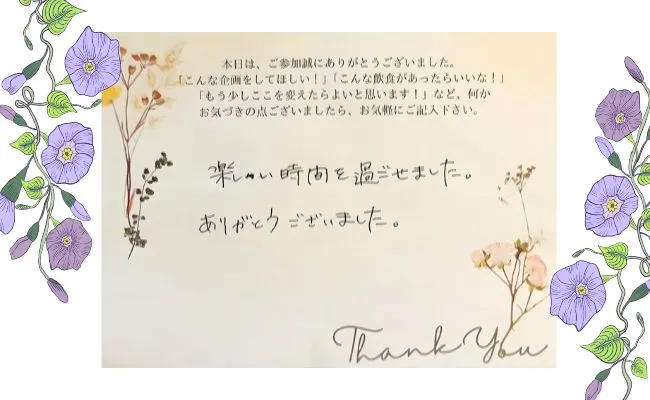 本日は、ご参加誠にありがとうございました。
「こんな企画をしてほしい！」「こんな飲食があったらいいな！」
「もう少しここを変えたらよいと思います！」など、何か
お気づきの点ございましたら、お気軽にご記入下さい。
楽しい時間を過ごせました。
ありがとうございました。
Thank You